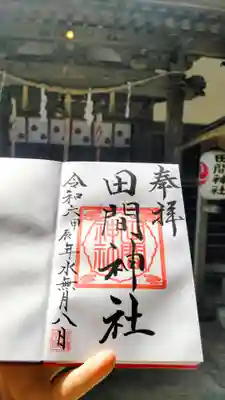 奉拝
田間神社
令和六甲辰年水無月八日
田間神社